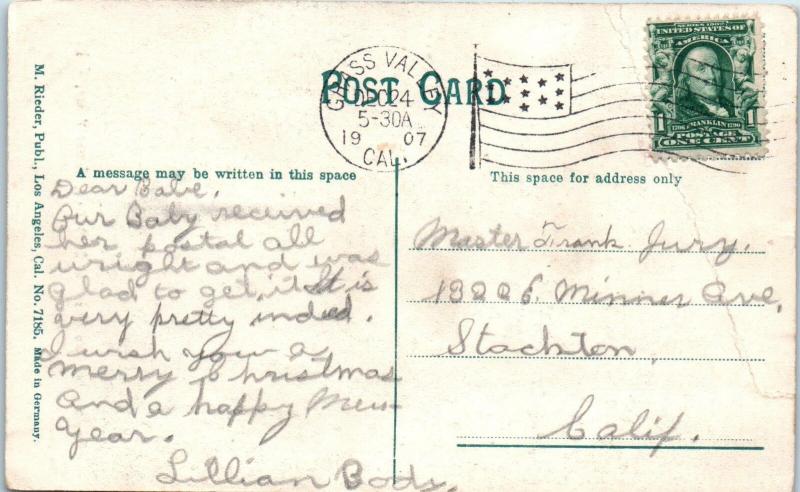 POST CARD
GRASS VALLEY
DEC 24
5-30A
1907
CAL.
SERIES 1902
UNITED STATES OF
AMERICA
1706 FRANKLIN 1790
1 1
POSTAGE
ONE CENT
A message may be written in this space
This space for address only
M. Rieder, Publ., Los Angeles, Cal. No. 7185. Made in Germany.
Dear Babe,
Our Baby received
her postal all
wright and was
glad to get it. It is
very pretty indeed.
I wish you a
Merry Christmas
And a happy New
Year.
Lillian Body.
Master Frank Jury.
E. Minner Ave,
Stockton,
Calif.